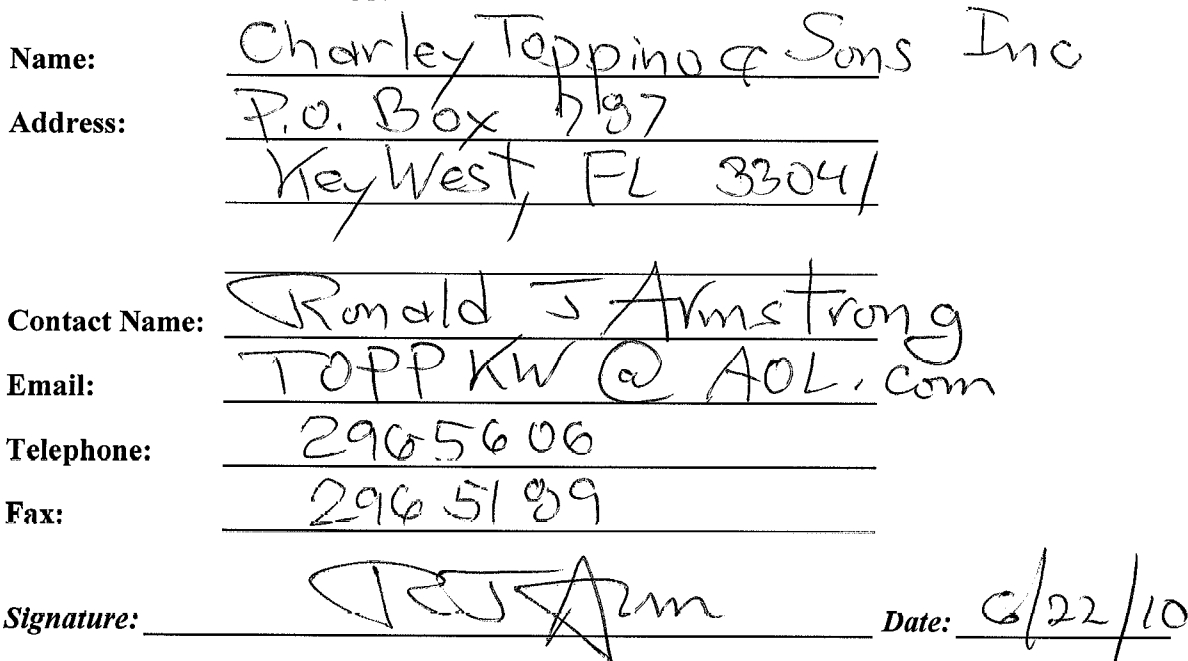 Name: Charley Toppino & Sons Inc
Address: P.O. Box 787
Key West, FL 33041
Contact Name: Ronald J Armstrong
Email: TOPPKW@AOL.com
Telephone: 2965606
Fax: 2965189
Signature: RJ Arm Date: 6/22/10